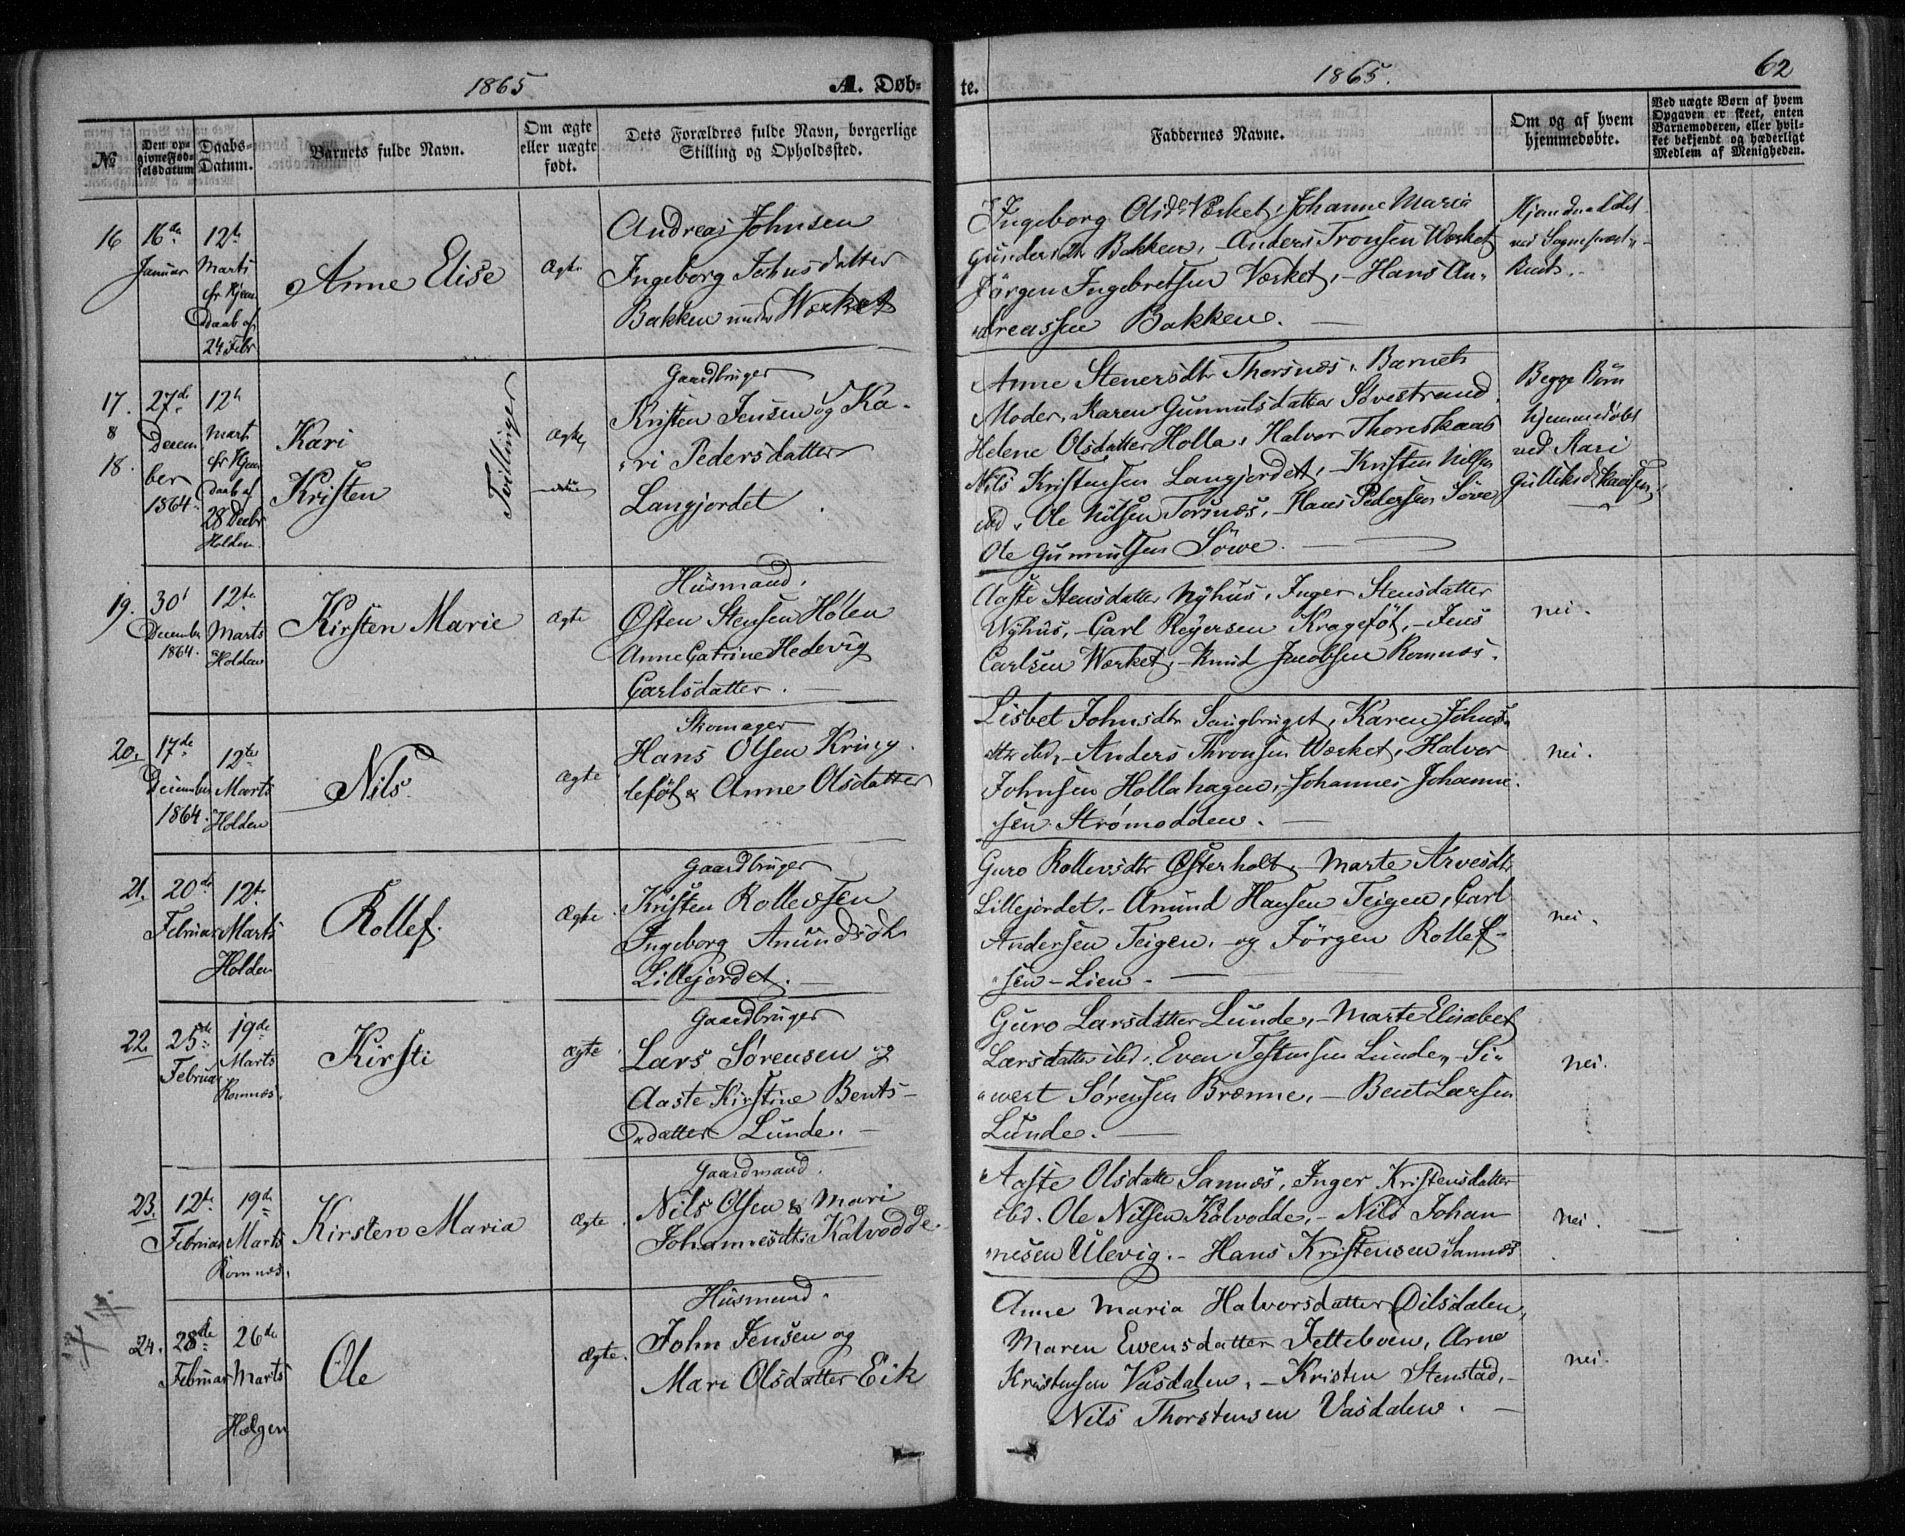 1865 A. Døb- te. 1865. 62
№
Den op-
givne Fød-
selsdatum
Daabs-
Datum.
Barnets fulde Navn.
Om ægte
eller uægte
født.
Dets Forældres fulde Navn, borgerlige
Stilling og Opholdssted.
Faddernes Navne.
Om og af hvem
hjemmedøbte.
Ved uægte Børn af hvem
Opgaven er skeet, enten
Barnemoderen, eller hvil-
ket bekjendt og hæderligt
Medlem af Menigheden.
16
16de
Januar
12te
Marts
fr Hjem
Daab af
24 Febr
Anne Elise
Ægte
Andreas Johnsen
Ingeborg Johnsdatter
Bakken under Wærket
Ingeborg Olsdr Værket, Johanne Maria
Gundersdtr Bakken, - Anders Tronsen Wærket
Jörgen Ingebretsen Værket, - Hans An-
dreassen Bakken.
Hjemdaabet
ved Sognepræst
17.
&
18.
27de
Decem
ber
1864
12te
Mart
fr Hjem
daab af
28 Decbr
Holden
Kari
Kristen
Tvillinger
Ægte
Gaardbruger
Kristen Jensen og Ka-
ri Pedersdatter
Langjordet
Anne Stenersdtr Thorsnæs, Barnets
Moder, Karen Gunnulsdatter Sövestrand
Helene Olsdatter Holla, Halvor Thoreskaas
Nils Kristensen Langjordet, - Kristen Nilsen
ibd, Ole Nilsen Torsnæs, - Hans Pedersen Söve
Ole Gunnulsen Söwe.
Begge Börn
hjemmedöbt
ved Kari
Gulliksdtr
19.
30te
December
1864.
12te
Marts
Holden
Kirsten Marie
Ægte
Husmand.
Østen Stensen Holen
Anne Catrine Hedevig
Carlsdatter.
Aaste Stensdatter Nyhus, Inger Stensdatter
Nyhus, - Carl Reyersen Krageföt, - Jens
Carlsen Wærket, - Knud Jacobsen Romnæs.
nei.
20.
17de
December
1864.
12te
Marts
Holden
Nils
Ægte
Skomager
Hans Olsen Kring-
leföt & Anne Olsdatter
Lisbet Johnsdtr Saugbruget, Karen Johns-
dttr ibd, - Anders Thronsen Wærket, Halvor
Johnsen Hollahagen, - Johannes Johanne-
sen Strømodden.
nei.
21.
20de
Februar
12te
Marts
Holden
Rollef.
Ægte.
Gaardbruger
Kristen Rollevsen
Ingeborg Amundsdtr
Lillejordet.
Guro Rollevsdtr Østerholt, - Marte Arvesdtr
Lillejordet. - Amund Hansen Teigen, Carl
Andersen Teigen, - og Jörgen Rollef-
sen - Lien -
nei.
22.
25de
Februar
19de
Marts
Romnæs.
Kirsti
ægte
Gaardbruger
Lars Sørensen og
Aaste Kirstine Bents-
datter Lunde.
Guro Larsdatter Lunde, - Marte Elisabet
Larsdatter ibd. Even Lunde, - Si-
wert Sørensen Brænne, - Bent Larsen
Lunde.
nei.
23.
12te
Februar
19de
Marts
Romnæs.
Kirsten Maria
ægte.
Gaardmand.
Nils Olsen & Mari
Johannesdtr Kalvodde
Aaste Olsdatter Sannæs, Inger Kristensdatter
ibd. Ole Nilsen Kalvodde, - Nils Johan-
nesen Ulevig. - Hans Kristensen Sannæs
nei.
24.
28de
Februar
26de
Marts
Hælgen
Ole
ægte.
Husmand.
John Jensen og
Mari Olsdatter Eik
Anne Maria Halvorsdatter Dilsdalen,
Maren Evensdatter Jetteboen, Arne
Kristensen Vasdalen, - Kristen Stenstad, -
Nils Thorstensen Vasdalen.
nei.